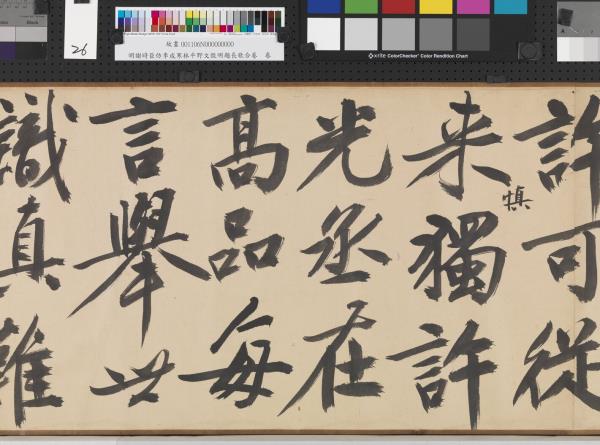 Black
26
故畫 001106N000000000
明謝時臣仿李成寒林平野文徵明題長歌合卷 卷
x-rite ColorChecker Color Rendition Chart
許可從
慎
来獨許
光丞在
高品每
言舉世
識真難